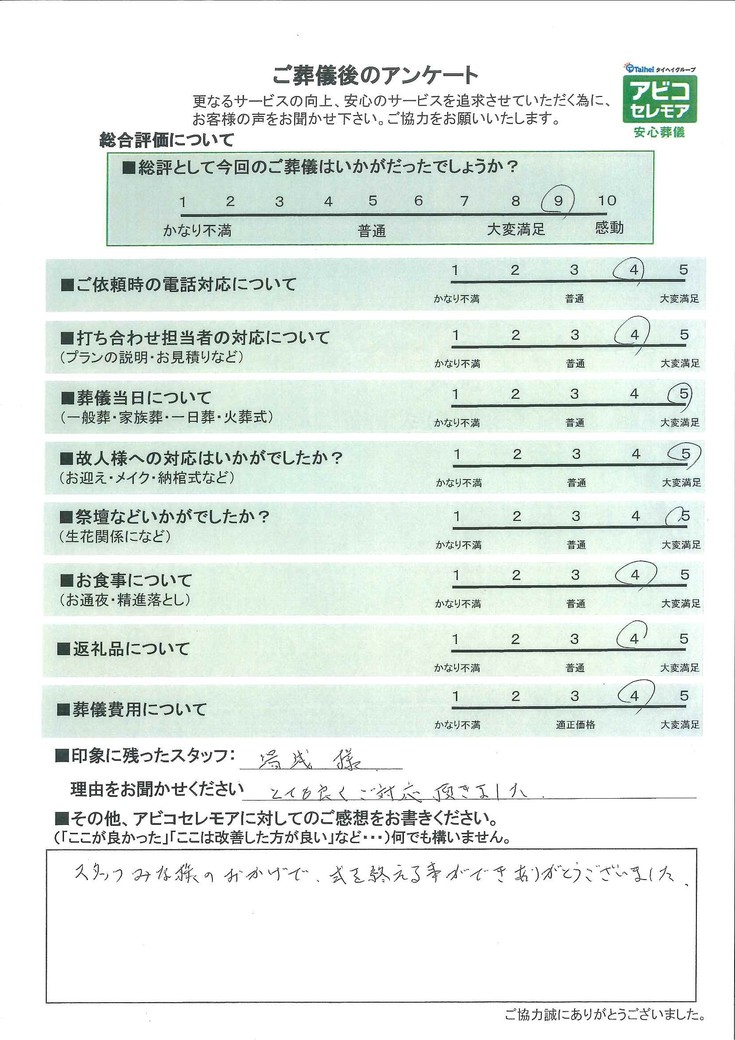 ご葬儀後のアンケート
Taihei タイヘイグループ
アビコ
セレモア
安心葬儀
更なるサービスの向上、安心のサービスを追求させていただく為に、
お客様の声をお聞かせ下さい。ご協力をお願いいたします。
総合評価について
■総評として今回のご葬儀はいかがだったでしょうか？
1 2 3 4 5 6 7 8 9 10
かなり不満 普通 大変満足 感動
■ご依頼時の電話対応について
1 2 3 4 5
かなり不満 普通 大変満足
■打ち合わせ担当者の対応について
(プランの説明・お見積りなど)
1 2 3 4 5
かなり不満 普通 大変満足
■葬儀当日について
(一般葬・家族葬・一日葬・火葬式)
1 2 3 4 5
かなり不満 普通 大変満足
■故人様への対応はいかがでしたか？
(お迎え・メイク・納棺式など)
1 2 3 4 5
かなり不満 普通 大変満足
■祭壇などいかがでしたか？
(生花関係になど)
1 2 3 4 5
かなり不満 普通 大変満足
■お食事について
(お通夜・精進落とし)
1 2 3 4 5
かなり不満 普通 大変満足
■返礼品について
1 2 3 4 5
かなり不満 普通 大変満足
■葬儀費用について
1 2 3 4 5
かなり不満 適正価格 大変満足
■印象に残ったスタッフ： 様
理由をお聞かせください とても良くご対応頂きました.
■その他、アビコセレモアに対してのご感想をお書きください。
(「ここが良かった」「ここは改善した方が良い」など・・・)何でも構いません。
スタッフみな様のおかげで、式を終える事ができありがとうございました.
ご協力誠にありがとうございました。